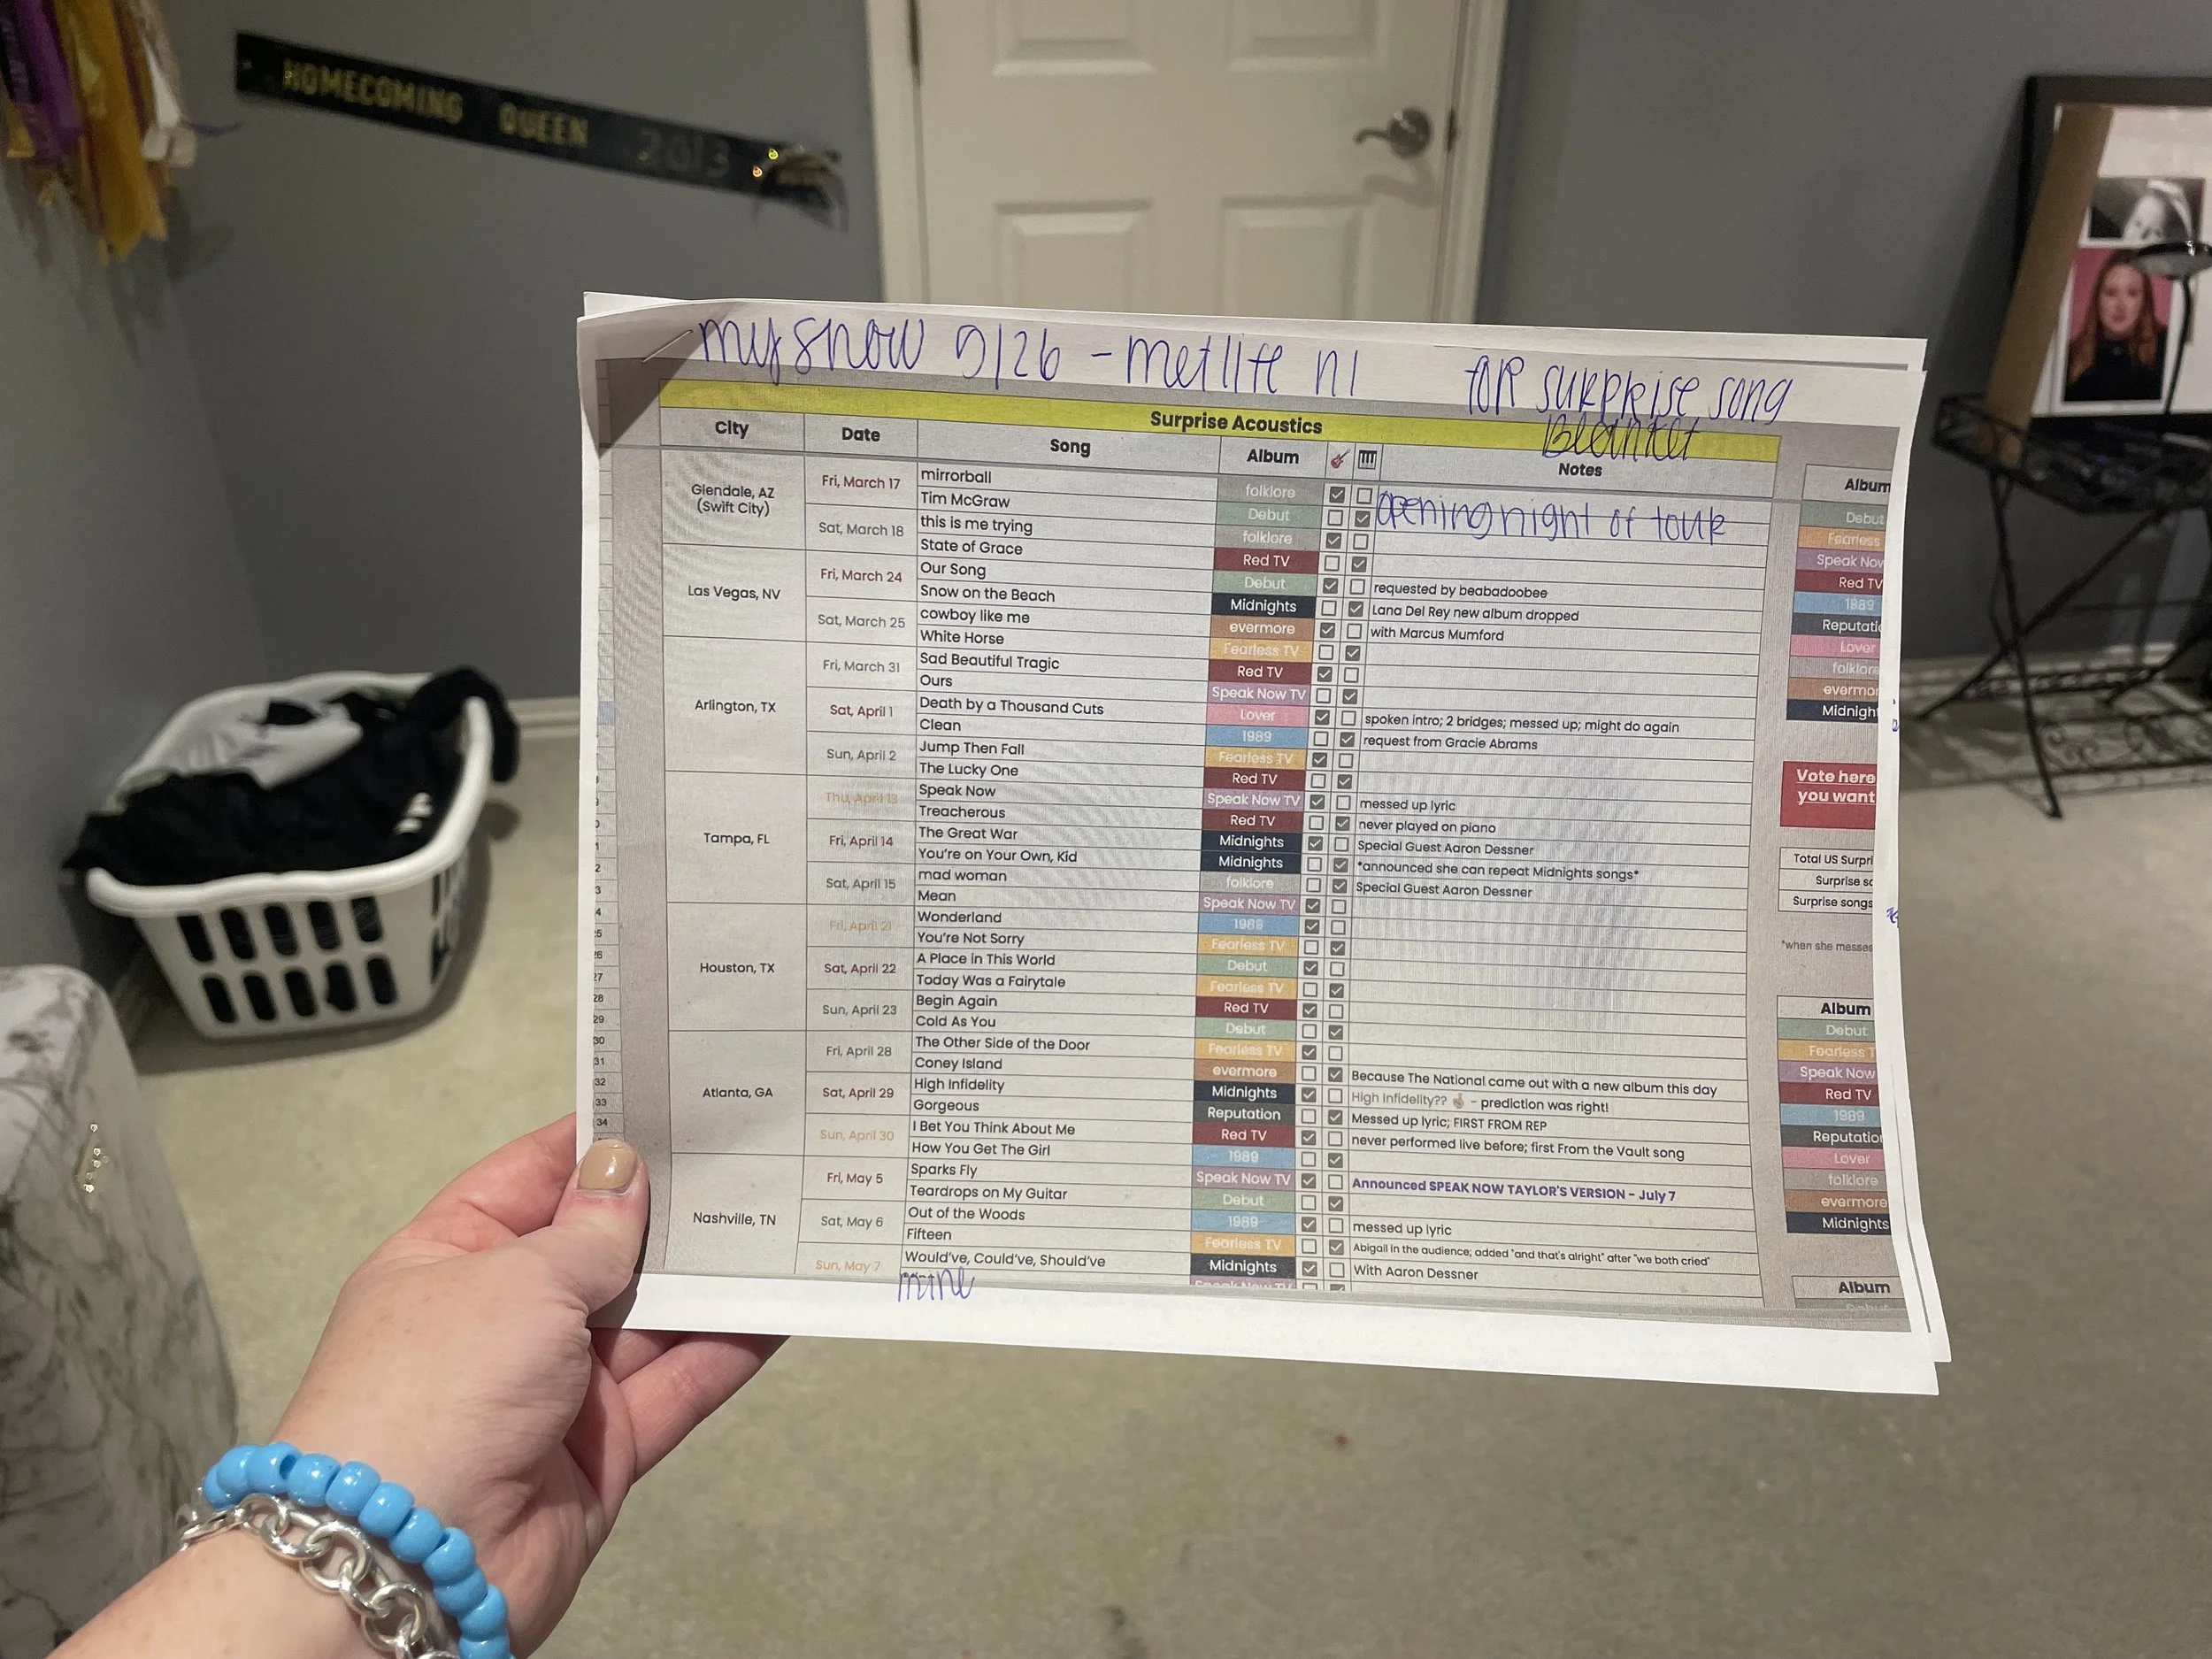 HOMECOMING QUEEN 2013
my show 5/26 - metlife n1
for surprise song
Blanket
Surprise Acoustics
City Date Song Album Notes
Glendale, AZ
(Swift City)
Fri, March 17
mirrorball folklore
Tim McGraw Debut opening night of tour
Sat, March 18
this is me trying folklore
State of Grace Red TV
Las Vegas, NV
Fri, March 24
Our Song Debut requested by beabadoobee
Snow on the Beach Midnights Lana Del Rey new album dropped
Sat, March 25
cowboy like me evermore with Marcus Mumford
White Horse Fearless TV
Arlington, TX
Fri, March 31
Sad Beautiful Tragic Red TV
Ours Speak Now TV
Sat, April 1
Death by a Thousand Cuts Lover spoken intro; 2 bridges; messed up; might do again
Clean 1989 request from Gracie Abrams
Sun, April 2
Jump Then Fall Fearless TV
The Lucky One Red TV
Tampa, FL
Thu, April 13
Speak Now Speak Now TV messed up lyric
Treacherous Red TV never played on piano
Fri, April 14
The Great War Midnights Special Guest Aaron Dessner
You're on Your Own, Kid Midnights *announced she can repeat Midnights songs*
Sat, April 15
mad woman folklore Special Guest Aaron Dessner
Mean Speak Now TV
Houston, TX
Fri, April 21
Wonderland 1989
You're Not Sorry Fearless TV
Sat, April 22
A Place in This World Debut
Today Was a Fairytale Fearless TV
Sun, April 23
Begin Again Red TV
Cold As You Debut
Atlanta, GA
Fri, April 28
The Other Side of the Door Fearless TV
Coney Island evermore Because The National came out with a new album this day
Sat, April 29
High Infidelity Midnights High Infidelity?? 🤞 - prediction was right!
Gorgeous Reputation Messed up lyric; FIRST FROM REP
Sun, April 30
I Bet You Think About Me Red TV never performed live before; first From the Vault song
How You Get The Girl 1989
Nashville, TN
Fri, May 5
Sparks Fly Speak Now TV Announced SPEAK NOW TAYLOR'S VERSION - July 7
Teardrops on My Guitar Debut
Sat, May 6
Out of the Woods 1989 messed up lyric
Fifteen Fearless TV Abigail in the audience; added "and that's alright" after "we both cried"
Sun, May 7
Would've, Could've, Should've Midnights With Aaron Dessner
mine Speak Now TV
Album
Debut
Fearless
Speak Nov
Red TV
1989
Reputati
Lover
folklore
evermo
Midnight
Vote here
you want
Total US Surpri
Surprise so
Surprise songs
*when she messes
Album
Debut
Fearless T
Speak Now
Red TV
1989
Reputatio
Lover
folklore
evermore
Midnights
Album
Debut
28
29
30
31
32
33
34